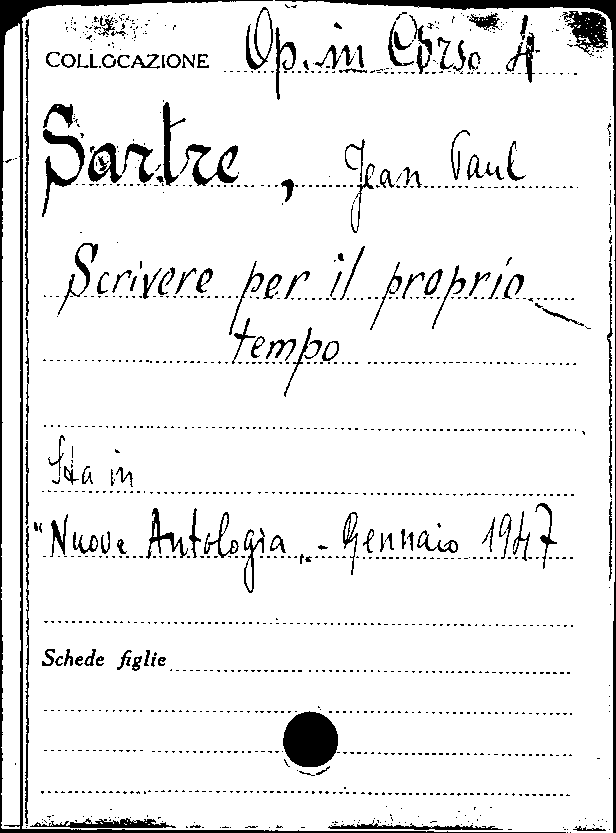 COLLOCAZIONE Op. in Corso 4
Sartre, Jean Paul
Scrivere per il proprio
tempo
Sta in
"Nuova Antologia„ - Gennaio 1947
Schede figlie